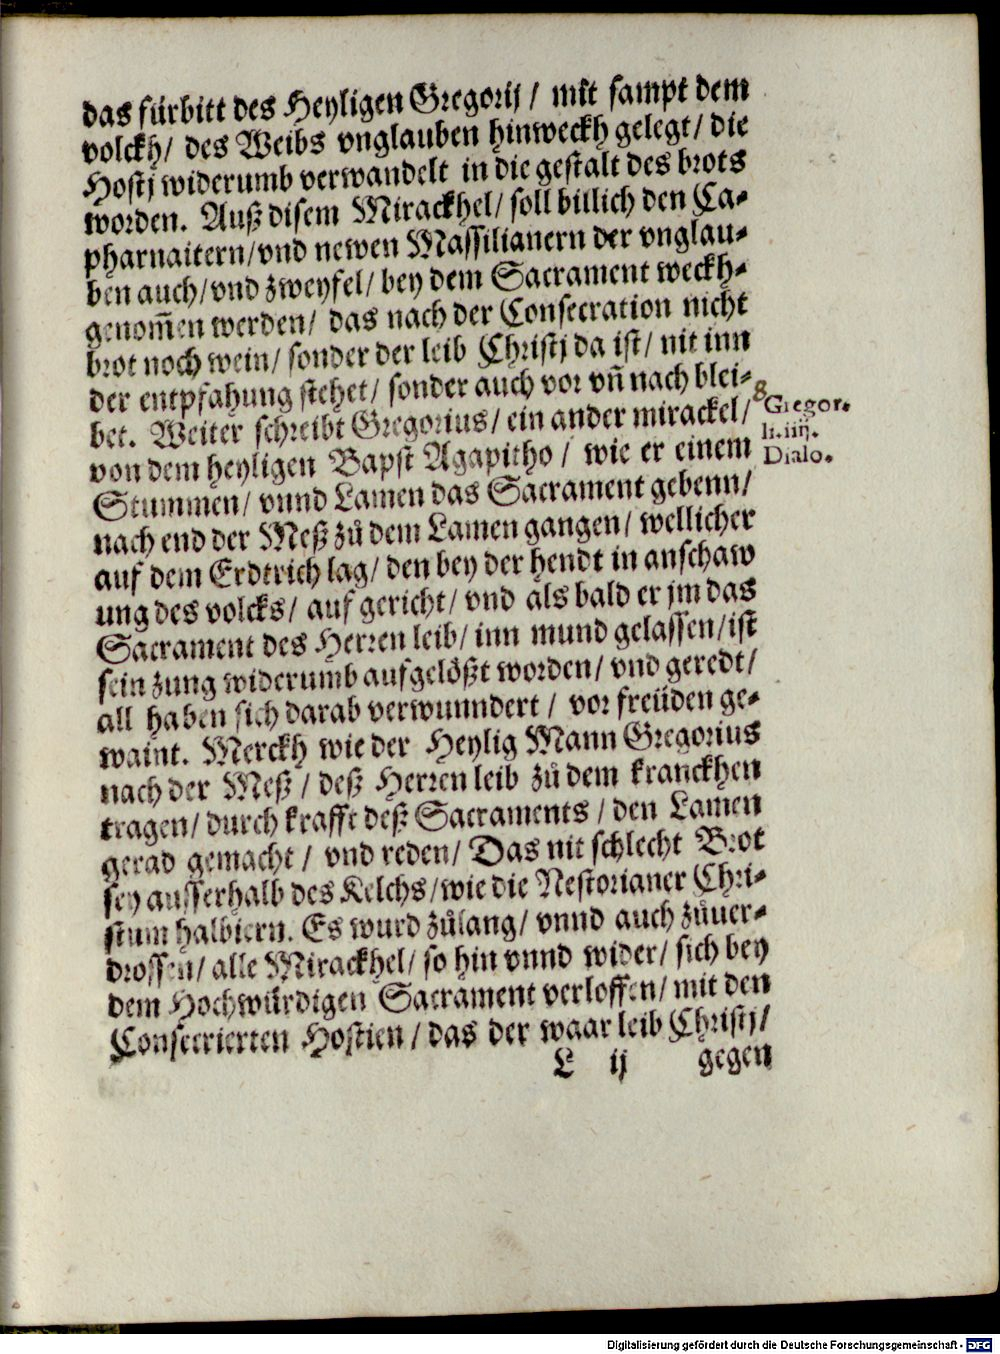 das fürbitt des Heyligen Gregorij / mit sampt dem
volckh / des Weibs vnglauben hinweckh gelegt / die
Hostj widerumb verwandelt in die gestalt des brots
worden. Auß disem Mirackhel / soll billich den Ca-
pharnaitern / vnd newen Massilianern der vnglau-
ben auch / vnd zweyfel / bey dem Sacrament weckh-
genom̄en werden / das nach der Consecration nicht
brot noch wein / sonder der leib Christj da ist / nit inn
der entpfahung stehet / sonder auch vor vn̄ nach blei-
bet. Weiter schreibt Gregorius / ein ander mirackel /
g Gregor.
li. iiij.
Dialo.
von dem heyligen Bapst Agapitho / wie er einem
Stummen / vnnd Lamen das Sacrament gebenn /
nach end der Meß zů dem Lamen gangen / wellicher
auf dem Erdtrich lag / den bey der hendt in anschaw
ung des volcks / auf gericht / vnd als bald er jm das
Sacrament des Herren leib / inn mund gelassen / ist
sein zung widerumb aufgelößt worden / vnd geredt /
all haben sich darab verwunndert / vor freüden ge-
waint. Merckh wie der Heylig Mann Gregorius
nach der Meß / deß Herren leib zů dem kranckhen
tragen / durch krafft deß Sacraments / den Lamen
gerad gemacht / vnd reden / Das nit schlecht Brot
sey ausserhalb des Kelchs / wie die Nestorianer Chri-
stum halbiern. Es wurd zůlang / vnnd auch zůuer-
drossen / alle Mirackhel / so hin vnnd wider / sich bey
dem Hochwürdigen Sacrament verloffen / mit den
Consecrierten Hostien / das der waar leib Christj /
L ij gegen
Digitalisierung gefördert durch die Deutsche Forschungsgemeinschaft - DFG